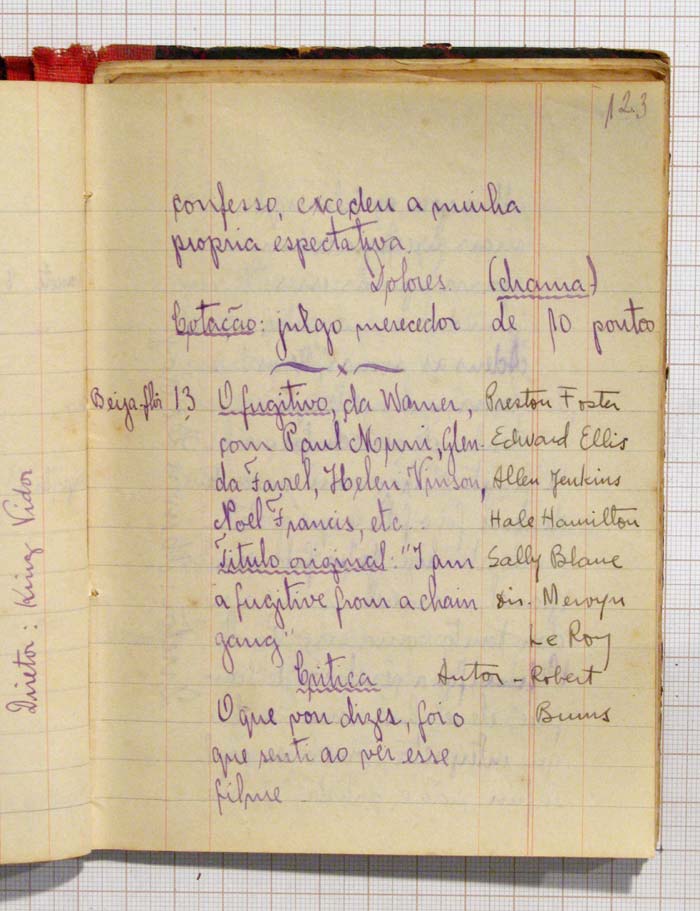 Diretor: King Vidor
123
confesso, excedeu a minha
propria espectativa.
Dolores. (drama)
Cotação: julgo merecedor de 10 pontos
x
Beija-flôr 13 O fugitivo, da Warner, Preston Foster
com Paul Muni, Glen- Edward Ellis
da Farrel, Helen Vinson, Allen Jenkins
Noel Francis, etc Hale Hamilton
Titulo original: "I am Sally Blane
a fugitive from a chain Dir. Mervyn
gang" Le Roy
Critica Autor - Robert
O que vou dizer, foi o Burns
que senti ao vêr esse
filme